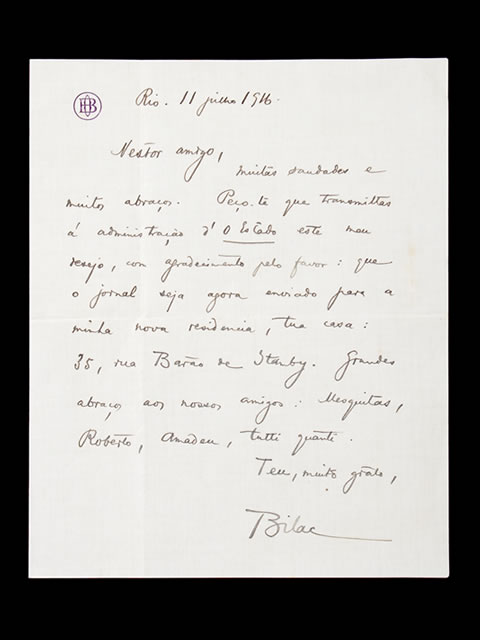 OB
Rio. 11 julho 1916.
Nestor amigo,
muitas saudades e
muitos abraços. Peço-te que transmittas
á administração d' O Estado este meu
desejo, com agradecimento pelo favor: que
o jornal seja agora enviado para a
minha nova residencia, tua casa:
35, rua Barão de Itamby. Grandes
abraços aos nossos amigos: Mesquitas,
Roberto, Amadeu, tutti quanti.
Teu, muito grato,
Bilac